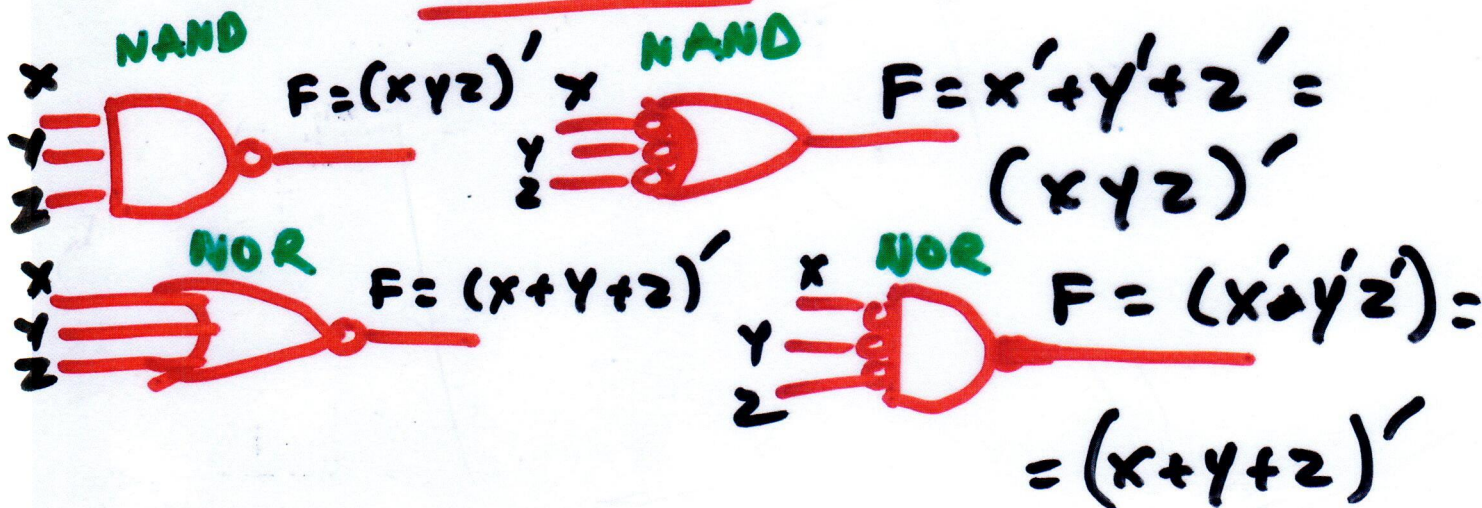 NAND
X
Y
Z
F=(xyz)'
NAND
X
Y
Z
F=x'+y'+z'=
(xyz)'
NOR
X
Y
Z
F=(x+y+z)'
NOR
X
Y
Z
F=(x'y'z')=
=(x+y+z)'